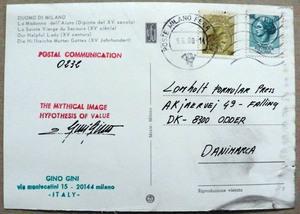 DUOMO DI MILANO
La Madonna dell'Aiuto (Dipinto del XV secolo)
La Sainte Vierge du Secours (XV siècle)
Our Helpful Lady (XV century)
Die Hilfreiche Mutter Gottes (XV Jahrhundert)
POSTAL COMMUNICATION
THE MYTHICAL IMAGE
HYPOTHESIS OF VALUE
Gino Gini
GINO GINI
via montecatini 15 - 20144 milano
- ITALY -
POSTE MILANO FE
Lomholt Formular Press
AKjærvej 49 - Falling
DK - 8300 ODDER
DANIMARCA
Riproduzione vietata